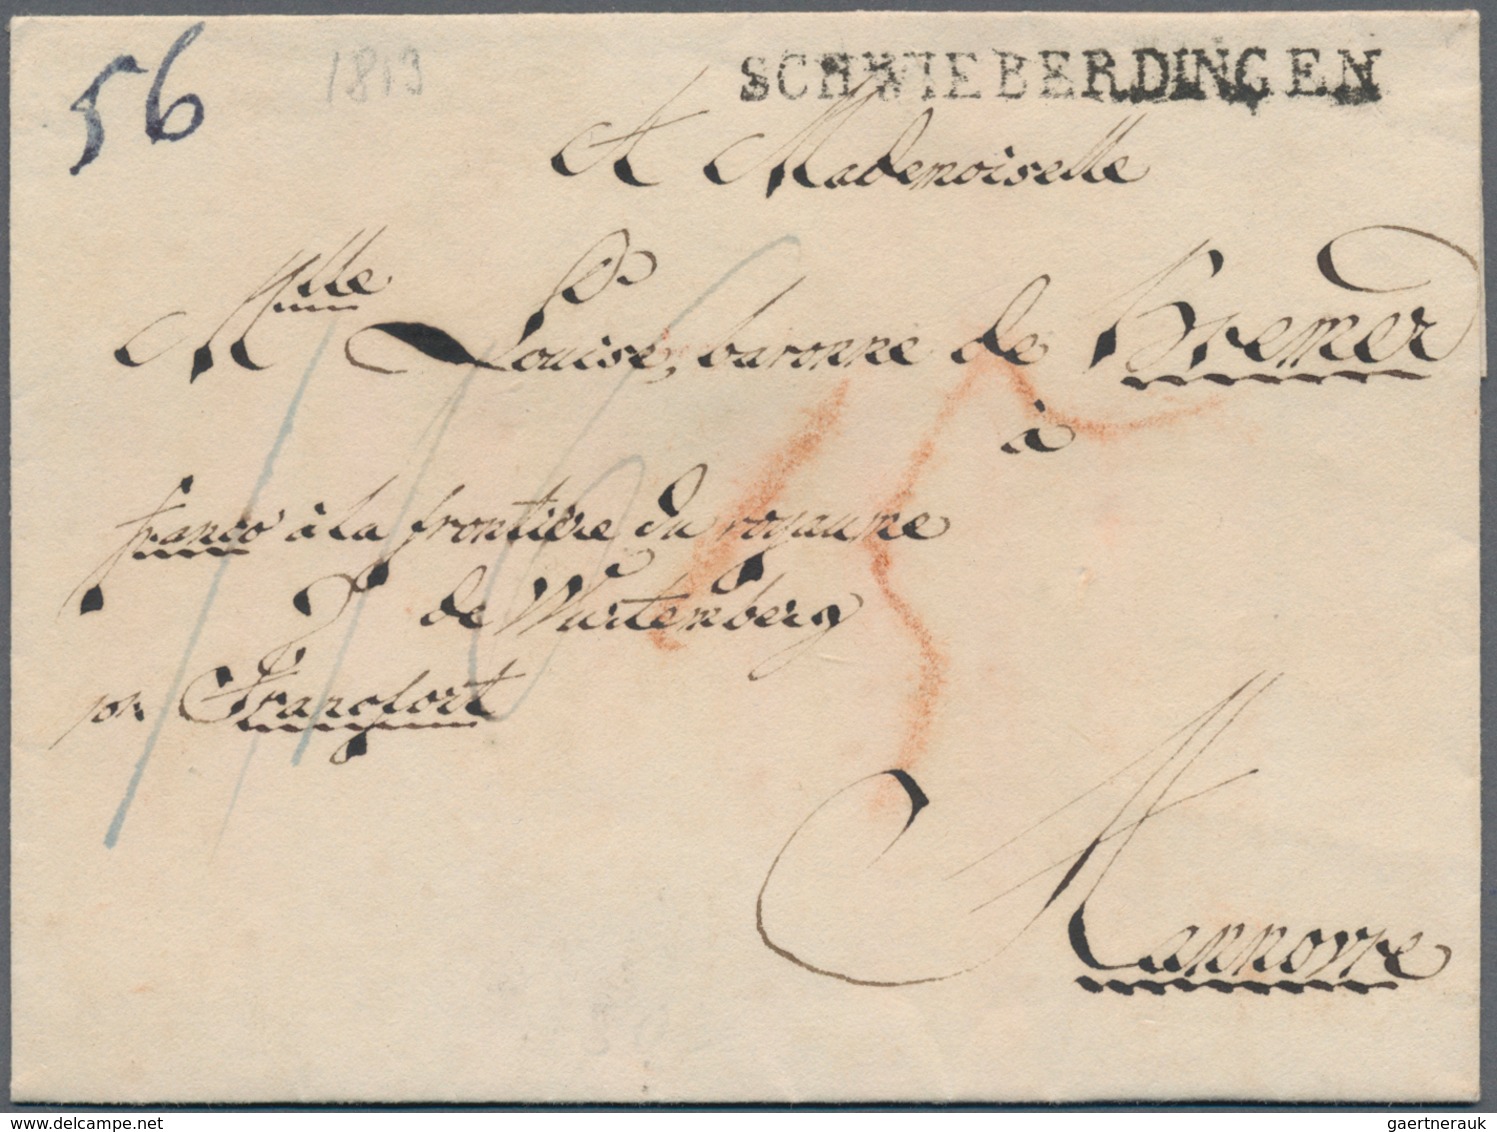 56
1819
SCHWIEBERDINGEN
A Mademoiselle
Mlle Louise, baronne de Bremer
à
franco à la frontière du royaume
de Wurtemberg
pr Francfort
Hannovre
delcampe.net
gaertnerauk